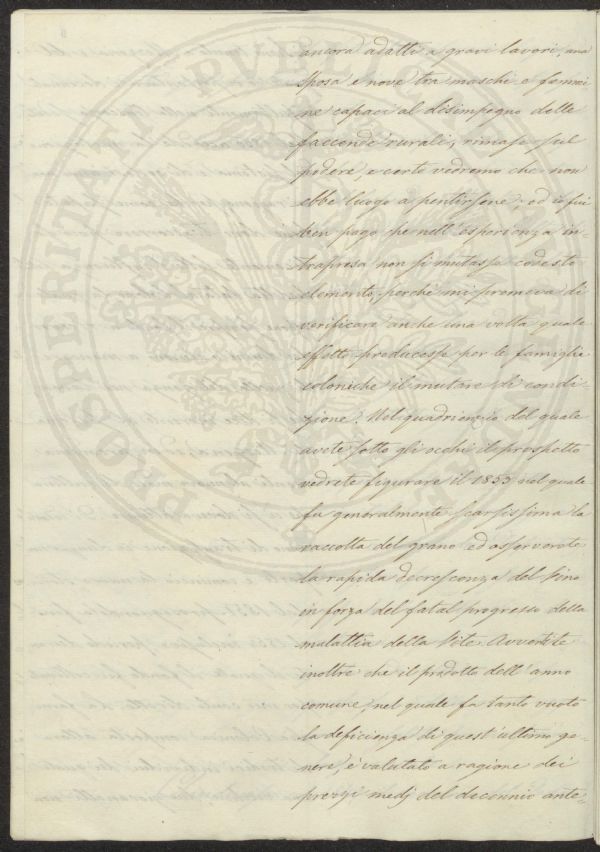 ancora adatti a gravi lavori, una
sposa e nove tra maschi e femmi
ne capaci al disimpegno delle
faccende rurali, rimase sul
podere, e certo vedremo che non
ebbe luogo a pentirsene; ed io fui
ben pago che nell'esperienza in-
trapresa non si mutasse codesto
elemento, perché mi premeva di
verificare anche una volta quale
effetto producesse per le famiglie
coloniche il mutare di condi-
zione. Nel quadriennio del quale
avete sotto gli occhi il prospetto
vedrete figurare il 1853 nel quale
fu generalmente scarsissima la
raccolta del grano ed osserverete
la rapida decrescenza del Vino
in forza del fatal progresso della
malattia della Vite. Avvertite
inoltre che il prodotto dell'anno
comune, nel quale fa tanto vuoto
la deficienza di quest'ultimo ge-
nere, è valutato a ragione dei
prezzi medj del decennio ante-
PROSPERITATI PVBLICAE